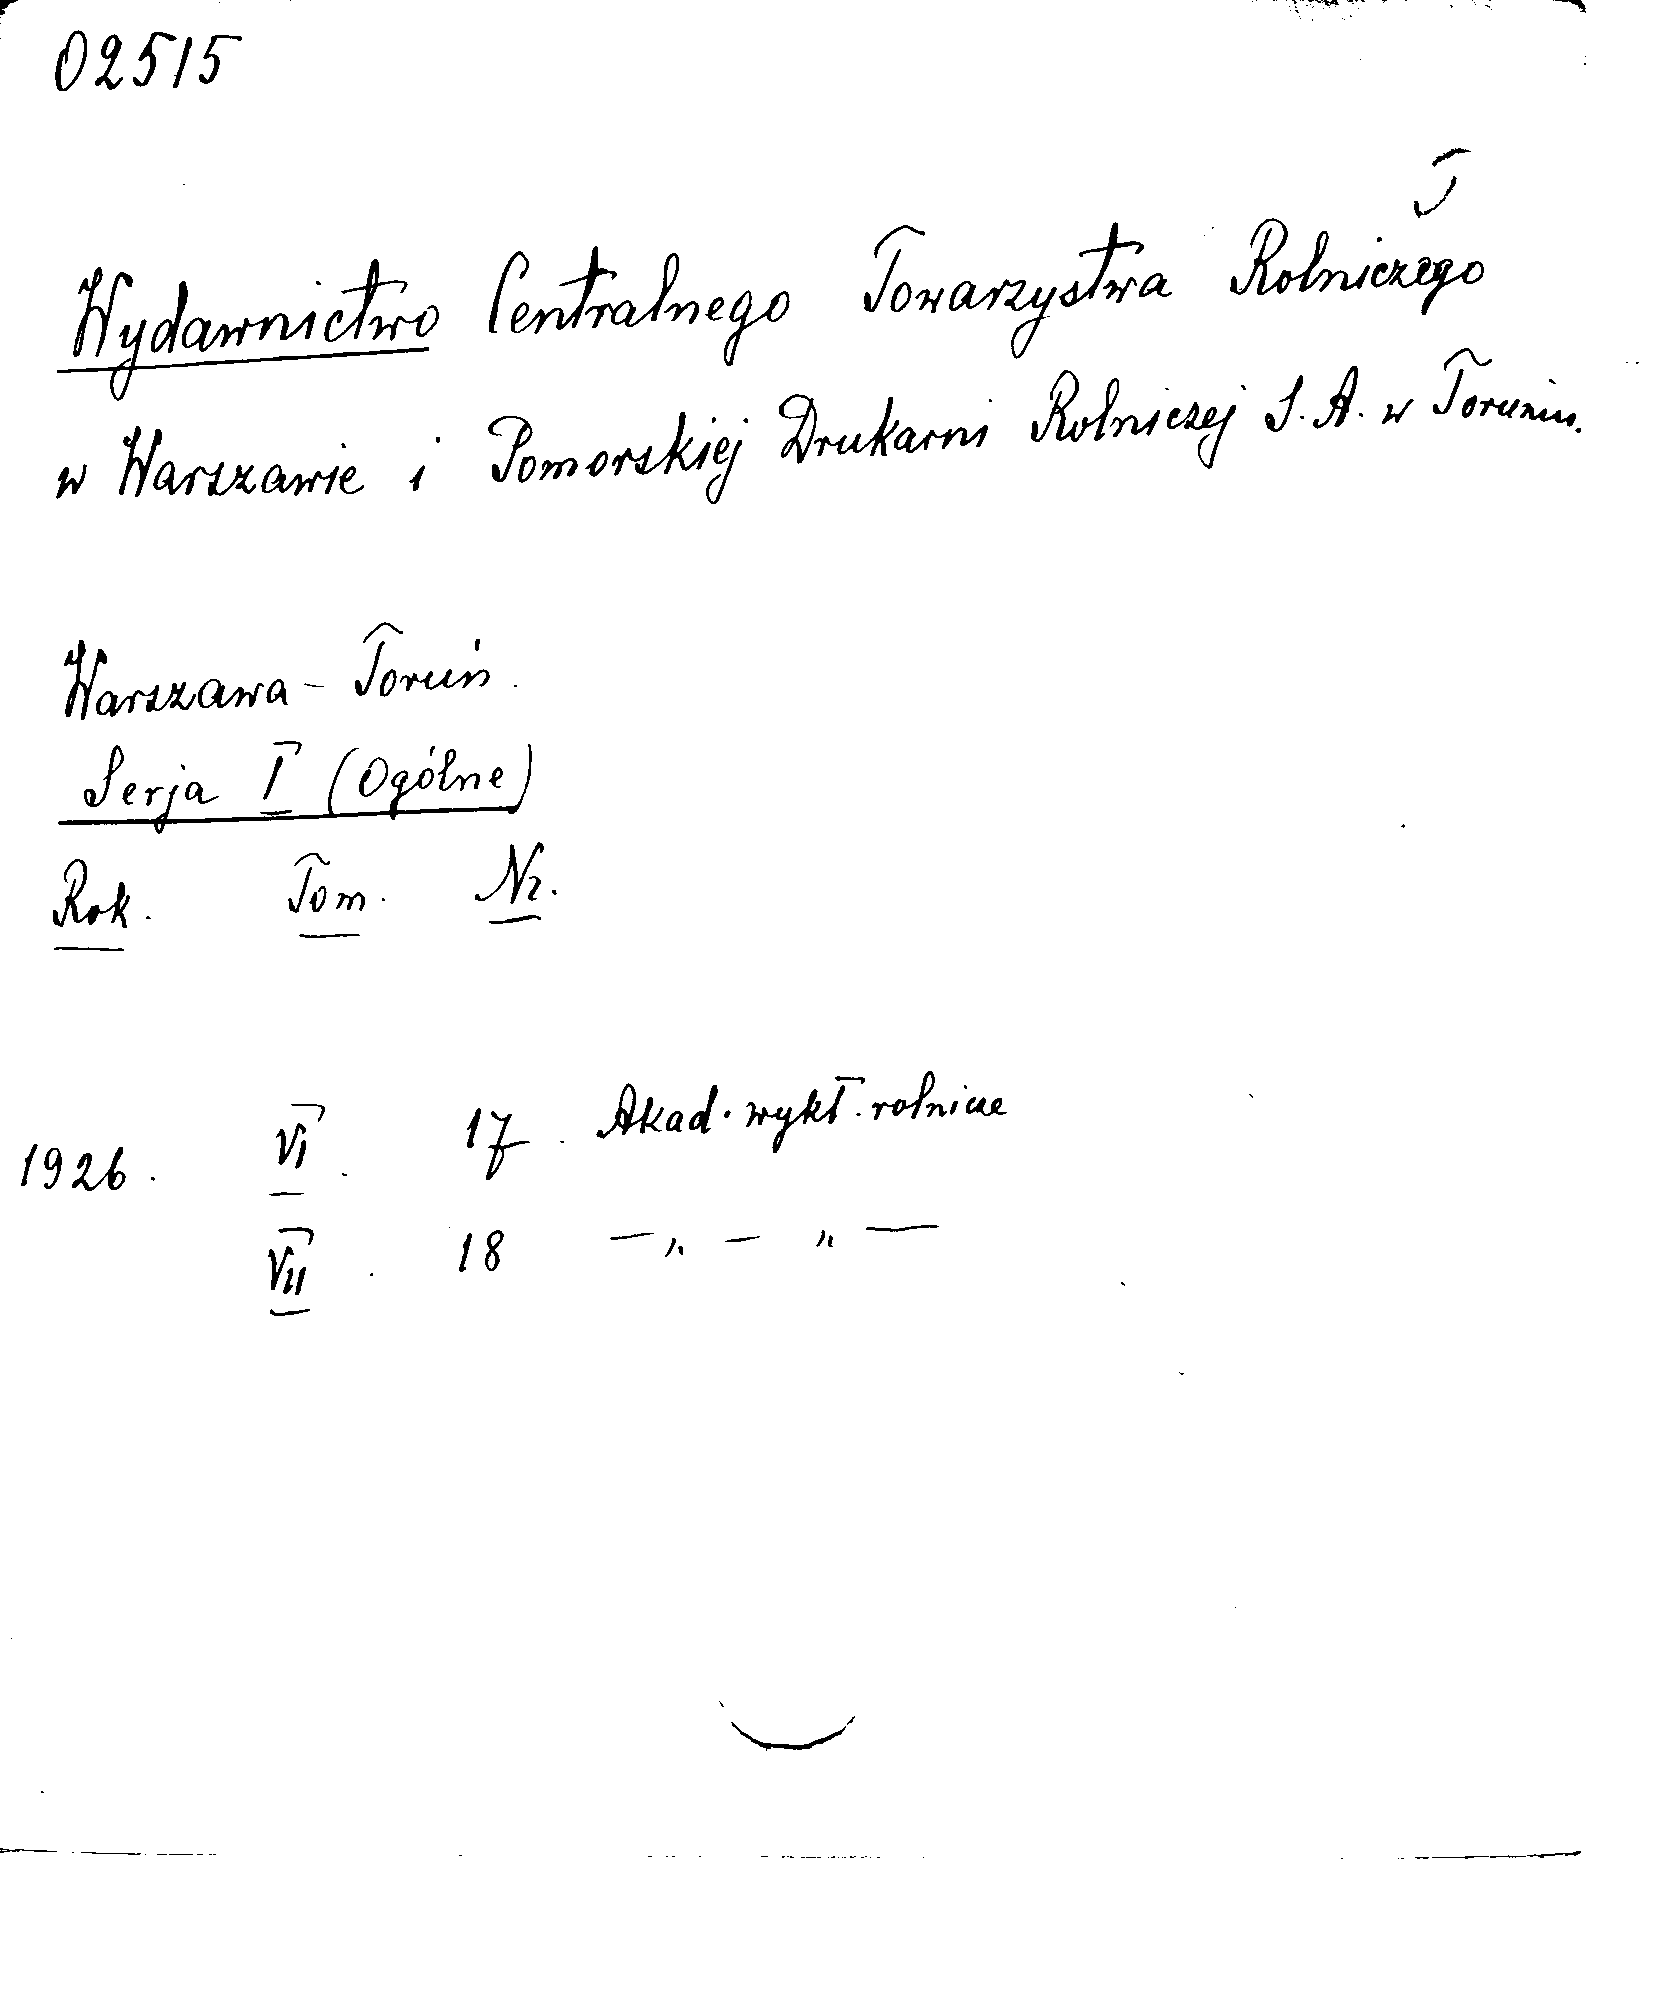 02515
I
Wydawnictwo Centralnego Towarzystwa Rolniczego
w Warszawie i Pomorskiej Drukarni Rolniczej S.A. w Toruniu.
Warszawa - Toruń.
Serja I (Ogólne)
Rok. Tom. Nr.
1926. VI. 17. Akad. wykł. rolnicze
VII. 18 — „ — „ —